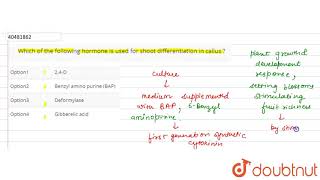 40481862
Which of the following hormone is used for shoot differentiation in callus ?
Option1 2,4-D
Option2 Benzyl amino purine (BAP)
Option3 Deformylase
Option4 Gibberelic acid
culture
medium supplementd
with BAP, 6-Benzyl
aminopurine.
first generation synthetic
cytokinin
plant growth
development
response,
setting blossoms
stimulating
fruit richness
by
doubtnut